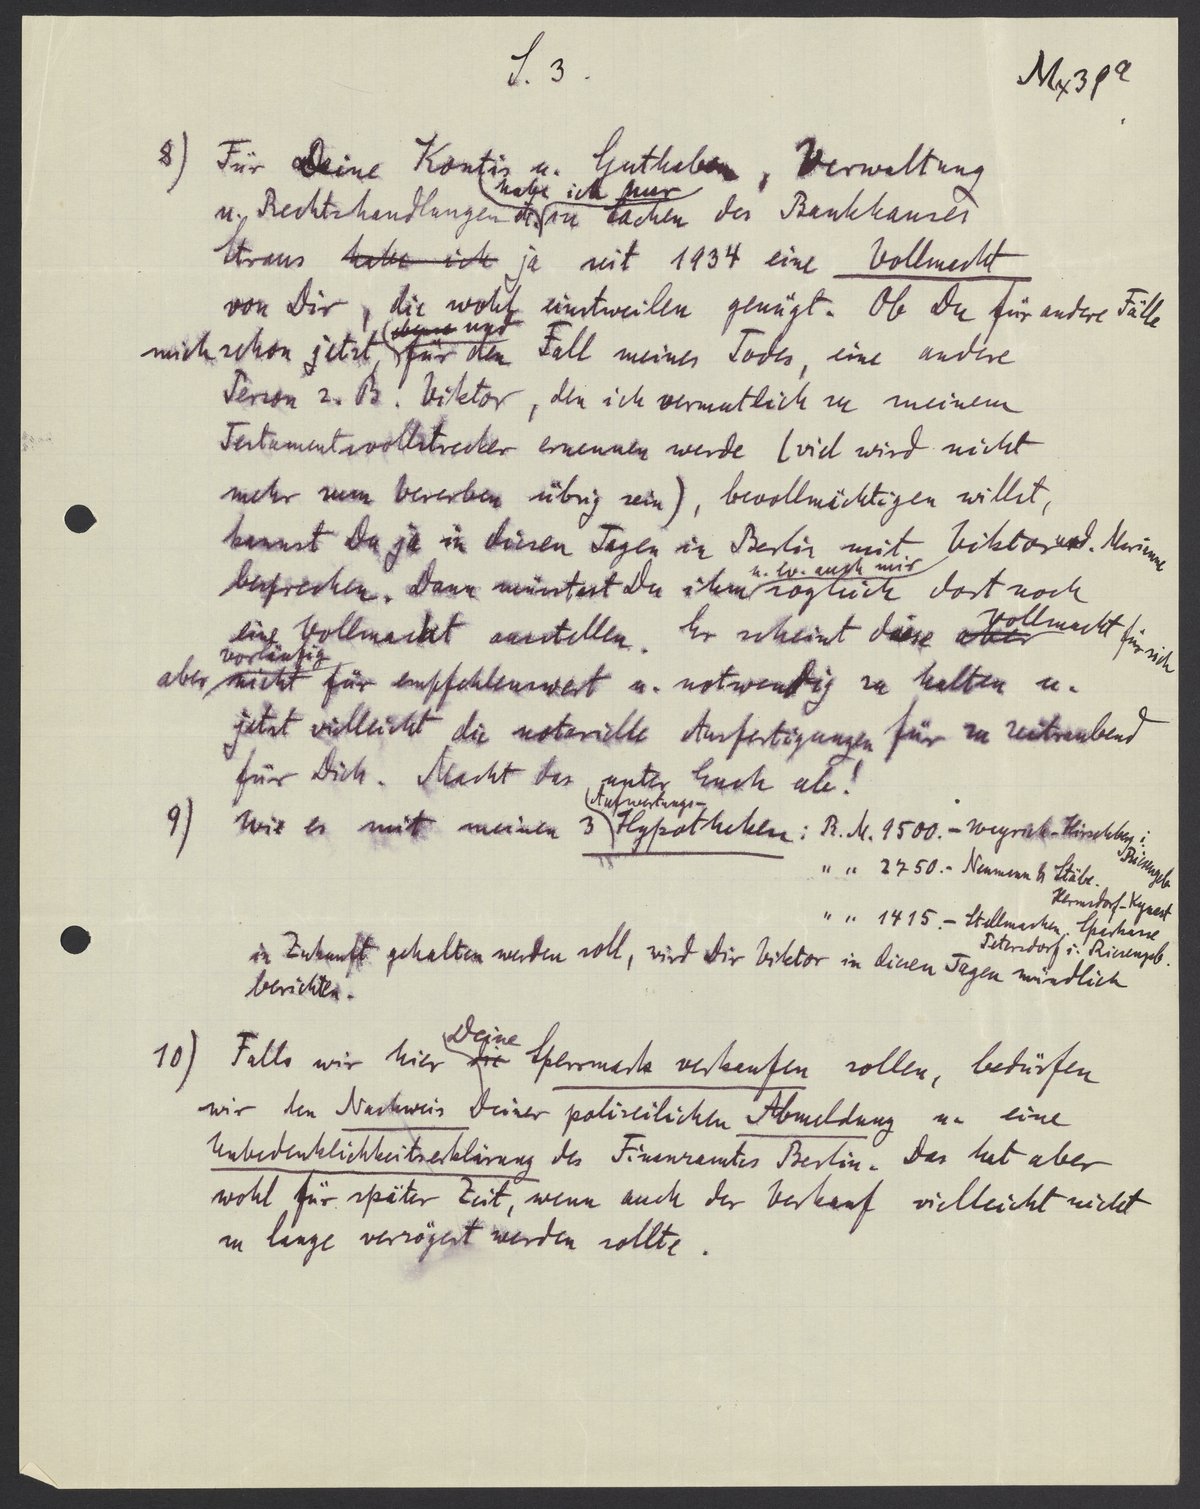 S. 3.
Mx39a
8) Für Deine Konti u. Guthaben, Verwaltung
habe ich nur
u. Rechtshandlungen in Sachen des Bankhauses
Straus habe ich ja seit 1934 eine Vollmacht
von Dir, die wohl einstweilen genügt. Ob Du für andere Fälle
und
mich schon jetzt, für den Fall meines Todes, eine andere
Person z. B. Viktor, den ich vermutlich zu meinem
Testamentsvollstrecker ernennen werde (viel wird nicht
mehr zum Vererben übrig sein), bevollmächtigen willst,
kannst Du ja in diesen Tagen in Berlin mit Viktor und Marianne
u. ev. auch mir
besprechen. Dann müsstest Du ihm sogleich dort noch
eine Vollmacht ausstellen. Er scheint diese aber Vollmacht für sich
vorläufig
aber nicht für empfehlenswert u. notwendig zu halten u.
jetzt vielleicht die notarielle Ausfertigungen für zu zeitraubend
für Dich. Macht das unter Euch ab!
Aufwertungs-
9) Wie es mit meinen 3 Hypotheken: R.M. 1500.- Weyrich-Hirschberg i.
Riesengeb.
" " 2750.- Neumann Stübe.
Hermsdorf-Kynast
" " 1415.- Stellmacher, Sparkasse
Petersdorf i. Riesengeb.
in Zukunft gehalten werden soll, wird Dir Viktor in diesen Tagen mündlich
berichten.
Deine
10) Falls wir hier die Sperrmark verkaufen sollen, bedürfen
wir den Nachweis Deiner polizeilichen Abmeldung u. eine
Unbedenklichkeitserklärung des Finanzamtes Berlin. Das hat aber
wohl für später Zeit, wenn auch der Verkauf vielleicht nicht
zu lange verzögert werden sollte.